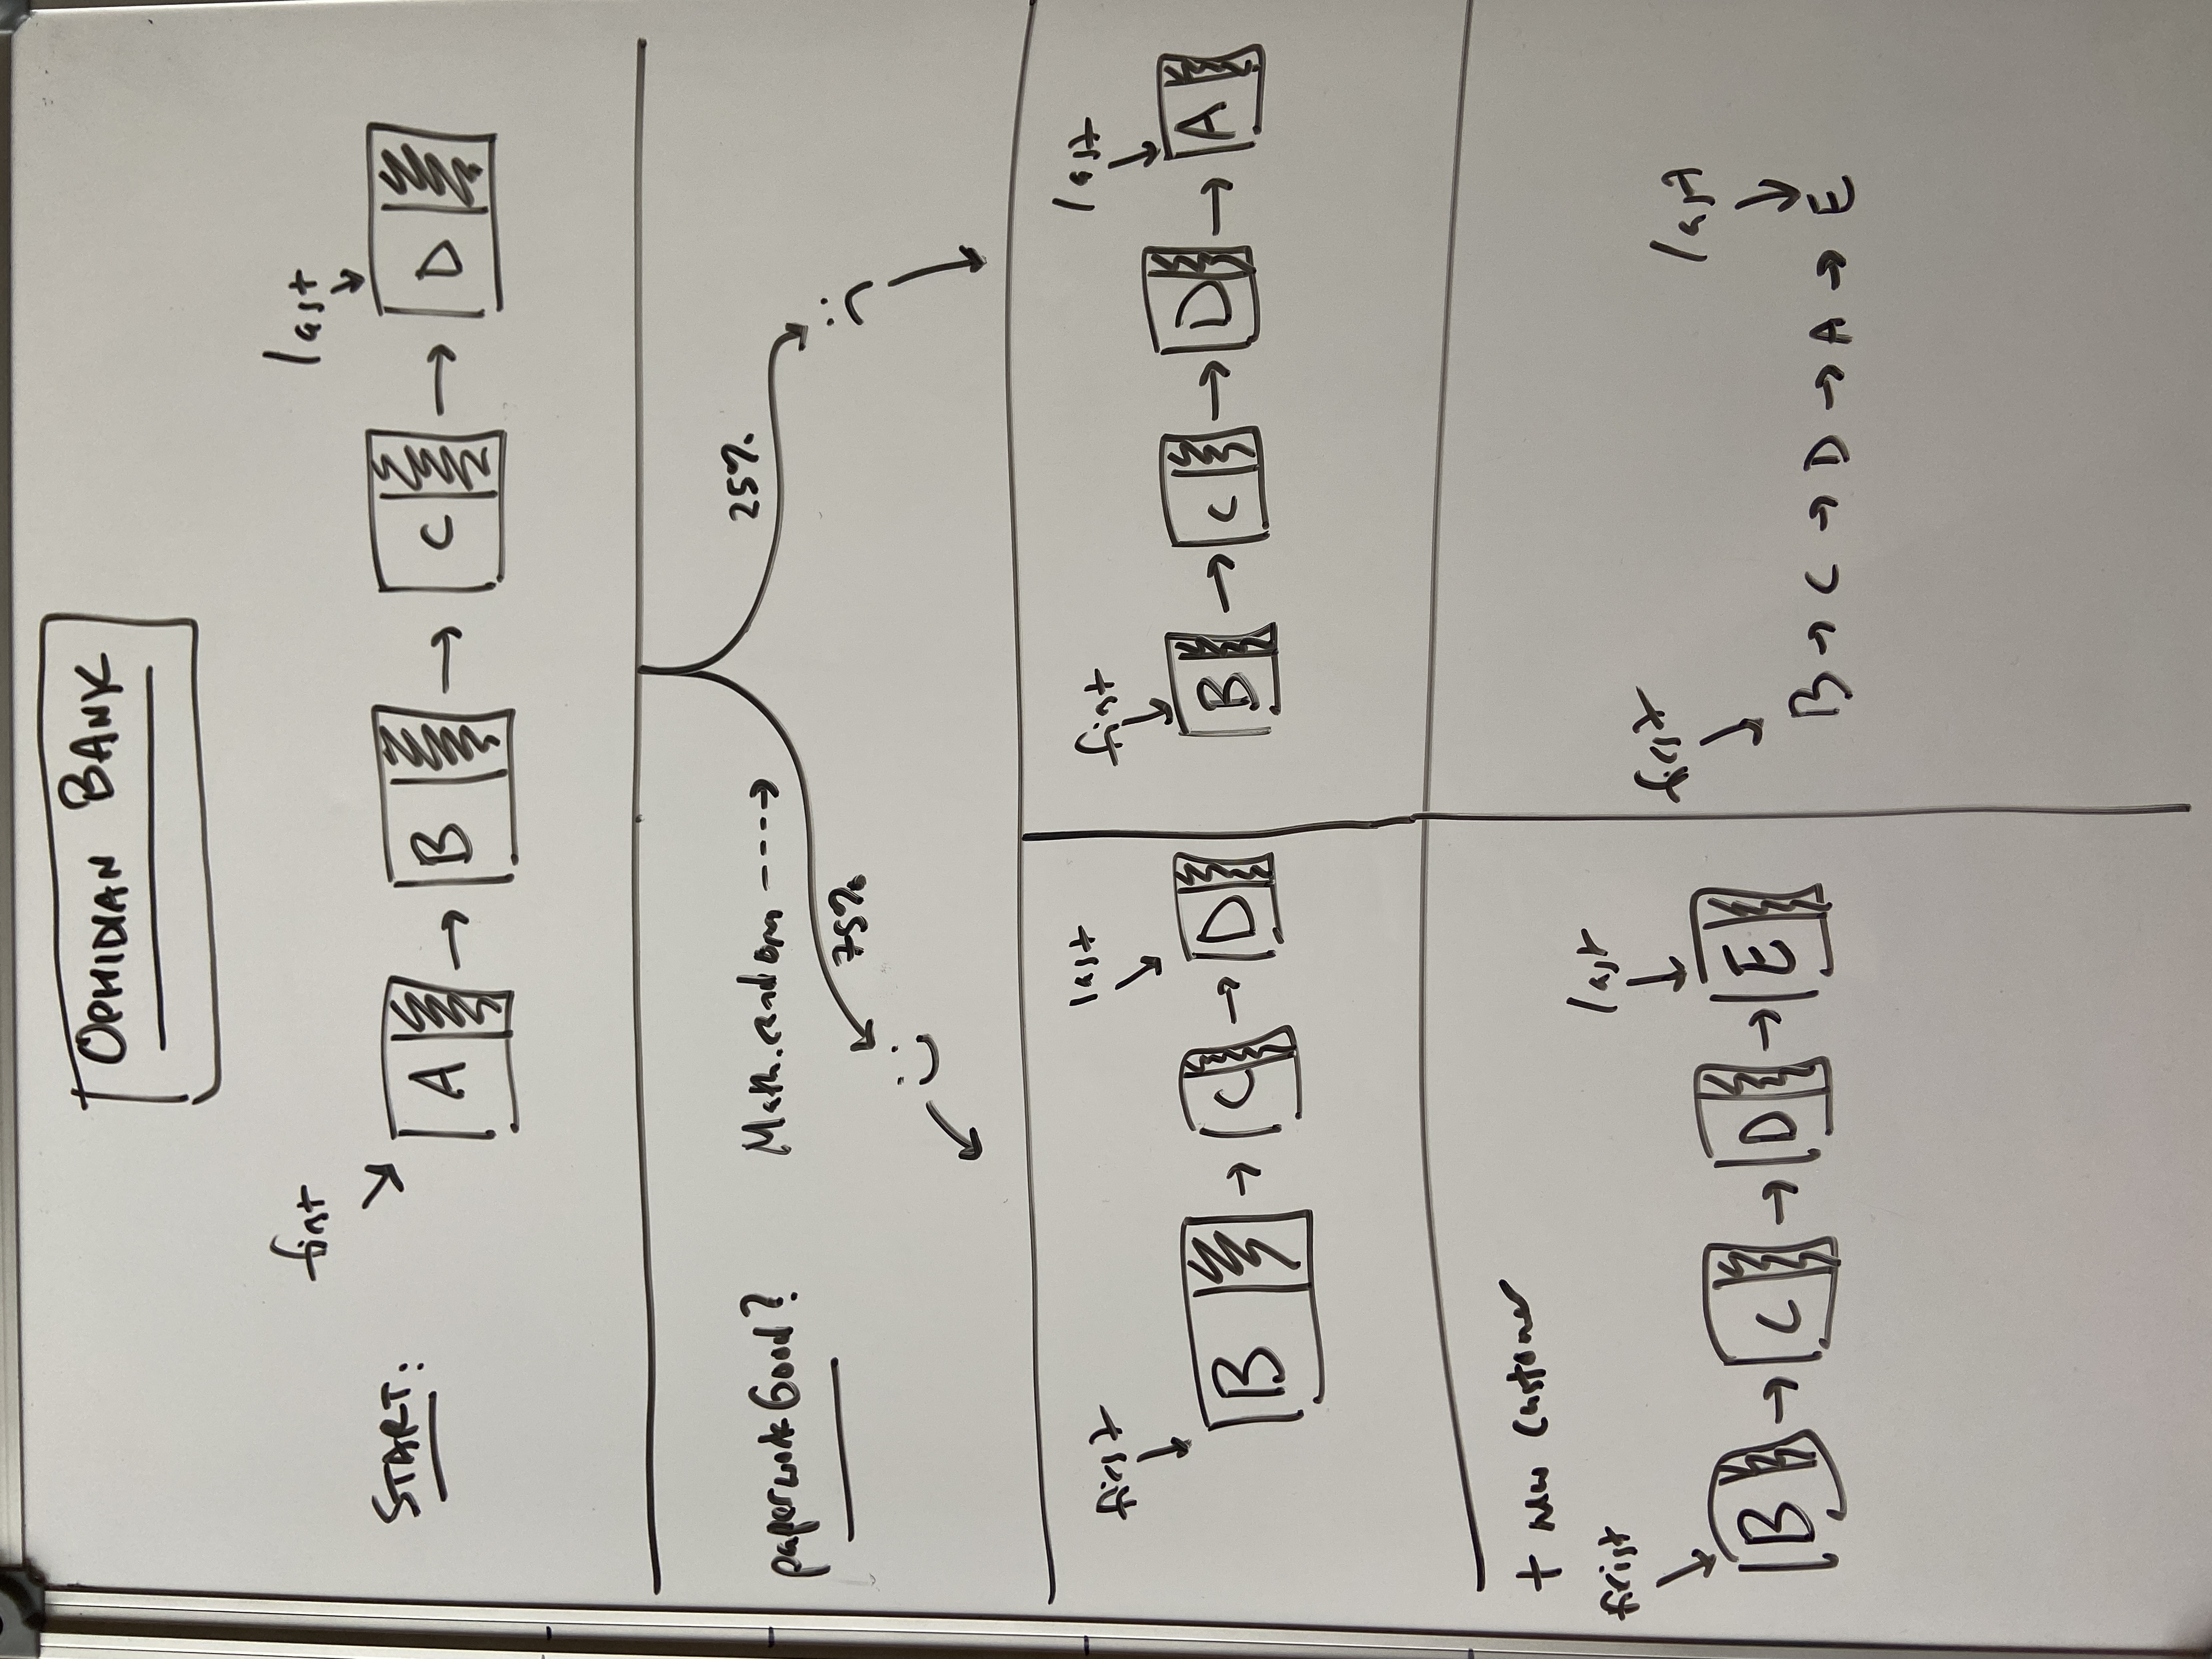 OPHIDIAN BANK
first last
START: A → B → C → D
25%
paperworkGood? Math.random ---->
75%
:)
:(
first last
B → C → D
first last
B → C → D → A
+ new customer
firist last
B → C → D → E
first last
B → C → D → A → E